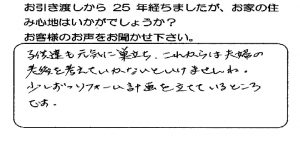 お引き渡しから 25 年経ちましたが、お家の住
み心地はいかがでしょうか？
お客様のお声をお聞かせ下さい。
子供達も元気に巣立ち、これからは夫婦の
老後を考えていかないといけませんね。
少しずつリフォーム計画を立てているところ
です。